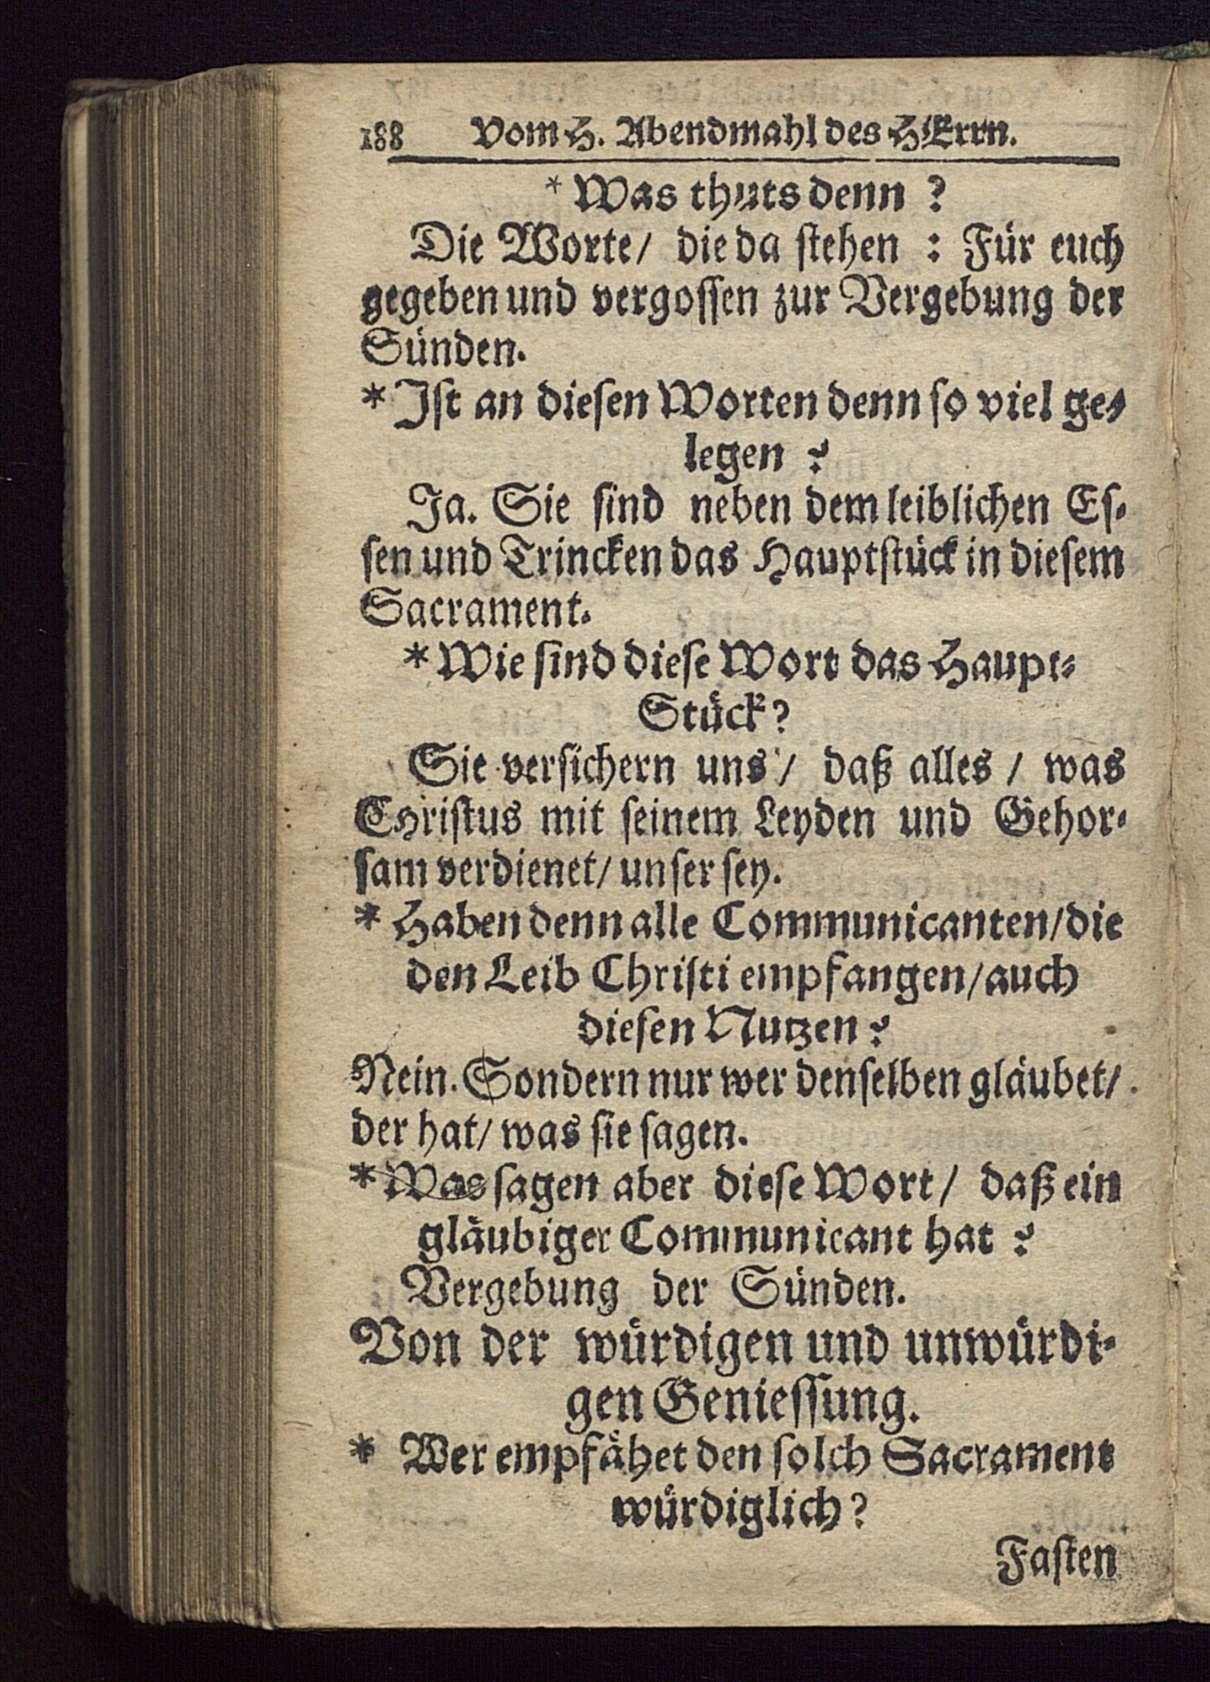 188 Vom H. Abendmahl des HErrn.
* Was thuts denn ?
Die Worte/ die da stehen : Für euch
gegeben und vergossen zur Vergebung der
Sünden.
* Ist an diesen Worten denn so viel ge-
legen ?
Ja. Sie sind neben dem leiblichen Es-
sen und Trincken das Hauptstück in diesem
Sacrament.
* Wie sind diese Wort das Haupt-
Stück?
Sie versichern uns / daß alles / was
CHristus mit seinem Leyden und Gehor-
sam verdienet/ unser sey.
* Haben denn alle Communicanten/die
den Leib Christi empfangen/auch
diesen Nutzen ?
Nein. Sondern nur wer denselben gläubet/
der hat/ was sie sagen.
* Was sagen aber diese Wort/ daß ein
gläubiger Communicant hat ?
Vergebung der Sünden.
Von der würdigen und unwürdi-
gen Geniessung.
* Wer empfähet den solch Sacrament
würdiglich?
Fasten